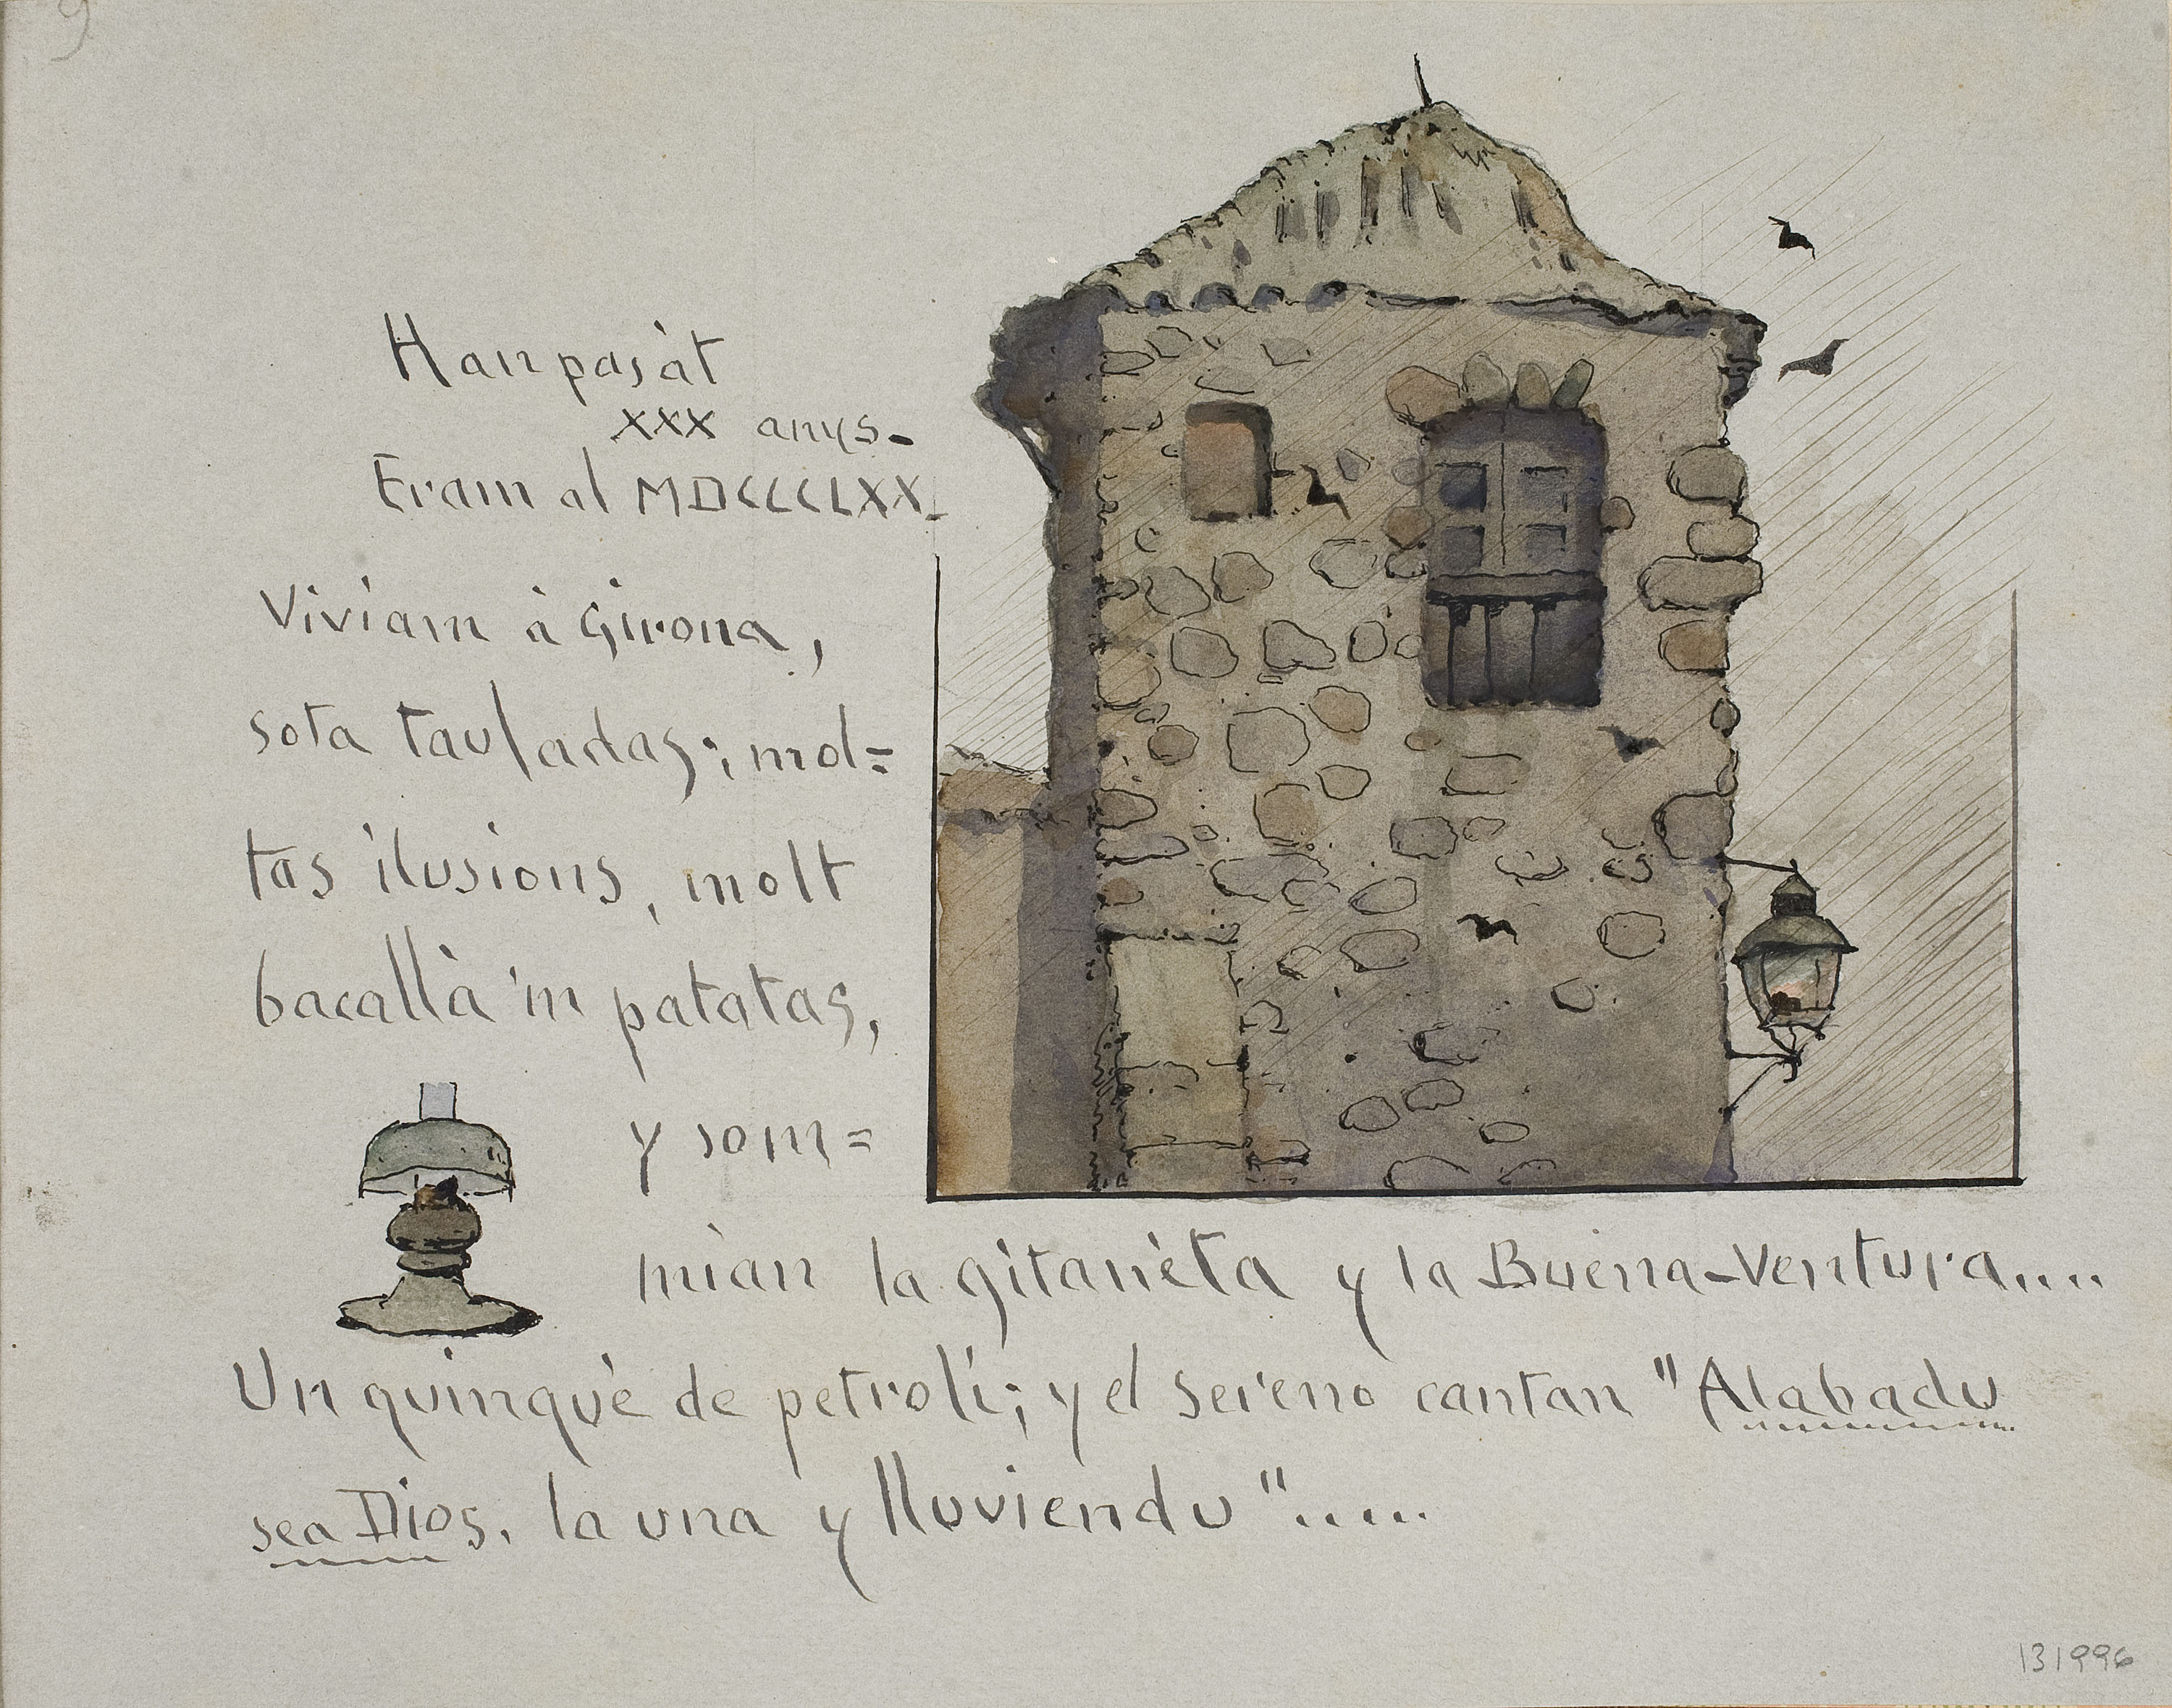 9
Han pasàt
XXX anys-
Eram al MDCCCCLXX-
Viviam à Girona,
sota tauladas; mol=
tas ilusions, molt
bacallà 'm patatas,
y som=
mian la gitanéta y la Buena-Ventura....
Un quinqué de petroli; y el sereno cantan "Alabadu
sea Dios, la una y lluviendu".....
131996